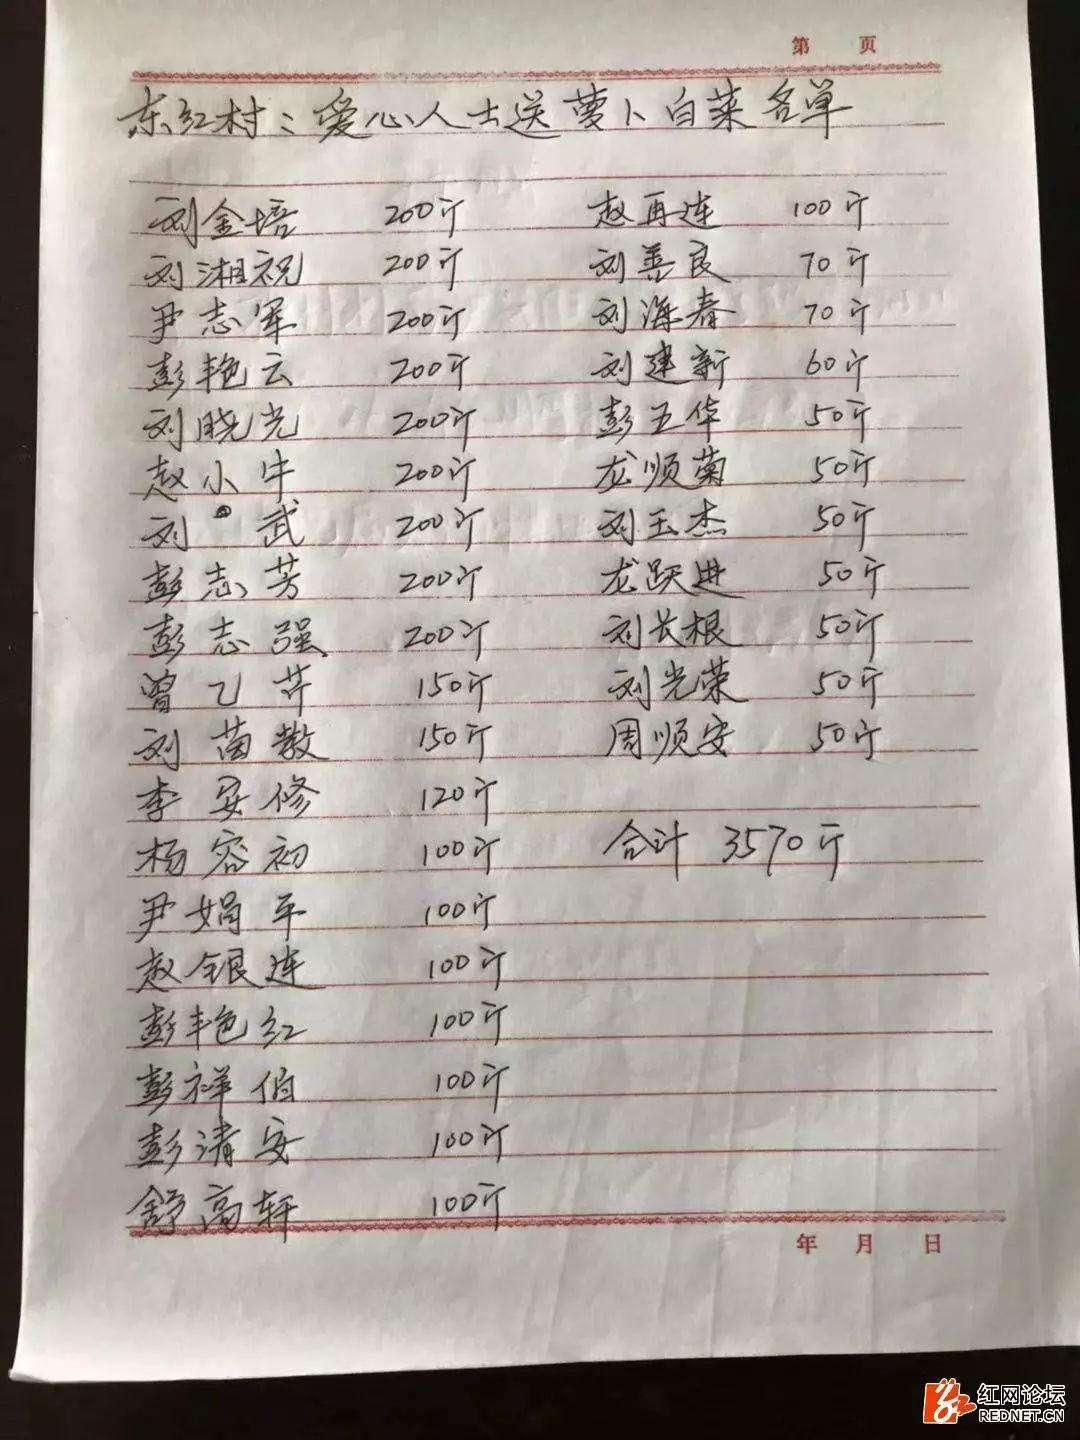 第 页
东红村：爱心人士送萝卜白菜名单
刘金培 200斤 赵再连 100斤
刘湘祝 200斤 刘善良 70斤
尹志军 200斤 刘海春 70斤
彭艳云 200斤 刘建新 60斤
刘晓光 200斤 彭五华 50斤
赵小牛 200斤 龙顺菊 50斤
刘武 200斤 刘玉杰 50斤
彭志芳 200斤 龙跃进 50斤
彭志强 200斤 刘长根 50斤
曾乙芹 150斤 刘光荣 50斤
刘苗教 150斤 周顺安 50斤
李安修 120斤
杨容初 100斤 合计 3570斤
尹娟平 100斤
赵银连 100斤
彭艳红 100斤
彭祥伯 100斤
彭清安 100斤
舒高轩 100斤
年 月 日
红网论坛
REDNET.CN